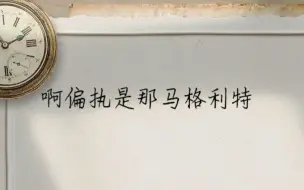 啊偏执是那马格利特